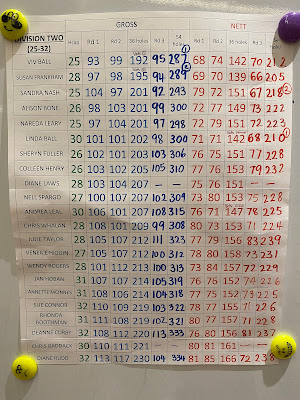 GROSS NETT
DIVISION TWO
(25-32) Hcap Rd 1 Rd 2 36 holes Rd 3 54 holes Rd 1 Rd 2 36 holes Rd 3
VIV BALL 25 93 99 192 95 287 68 74 142 70 212
SUSAN FRANKHAM 28 97 98 195 94 289 69 70 139 66 205
SANDRA NASH 25 104 97 201 92 293 79 72 151 67 218
AEGON BONE 26 98 103 201 99 300 72 77 149 73 222
NAREDA LEARY 25 97 104 201 97 298 72 79 151 72 223
LINDA BALL 30 101 101 202 98 300 71 71 142 68 210
SHERYN FULLER 26 102 101 203 103 306 76 75 151 77 228
COLLEEN HENRY 26 103 102 205 105 310 77 76 153 79 232
DIANE LAWS 28 103 104 207 — — 75 76 151 — —
NELL SPARGO 27 100 107 207 102 309 73 80 153 75 228
ANDREA LEAL 30 106 101 207 108 315 76 71 147 78 225
CHRIS WHALAN 28 108 101 209 99 308 80 73 153 71 224
JULIE TAYLOR 28 105 107 212 111 323 77 79 156 83 239
VENEICE HIGGIN 27 105 107 212 100 312 78 80 158 73 231
WENDY ROGERS 28 101 112 213 100 313 73 84 157 72 229
JAN HOBAN 31 107 107 214 105 319 76 76 152 74 226
31 108 106 214 104 318 73 225
SUE CONNOR 32 110 109 219 103 322 78 77 155 71 226
RHONDA
BOOTHMAN 31 111 108 219 102 321 80 77 157 71 228
DEANNE 32 108 112 220 113 333 76 80 156 81 237
CHRIS BADDACK 30 110 111 221 — — 80 81 161 — —
DIANE RUDD 32 113 117 230 104 334 81 85 166 72 238